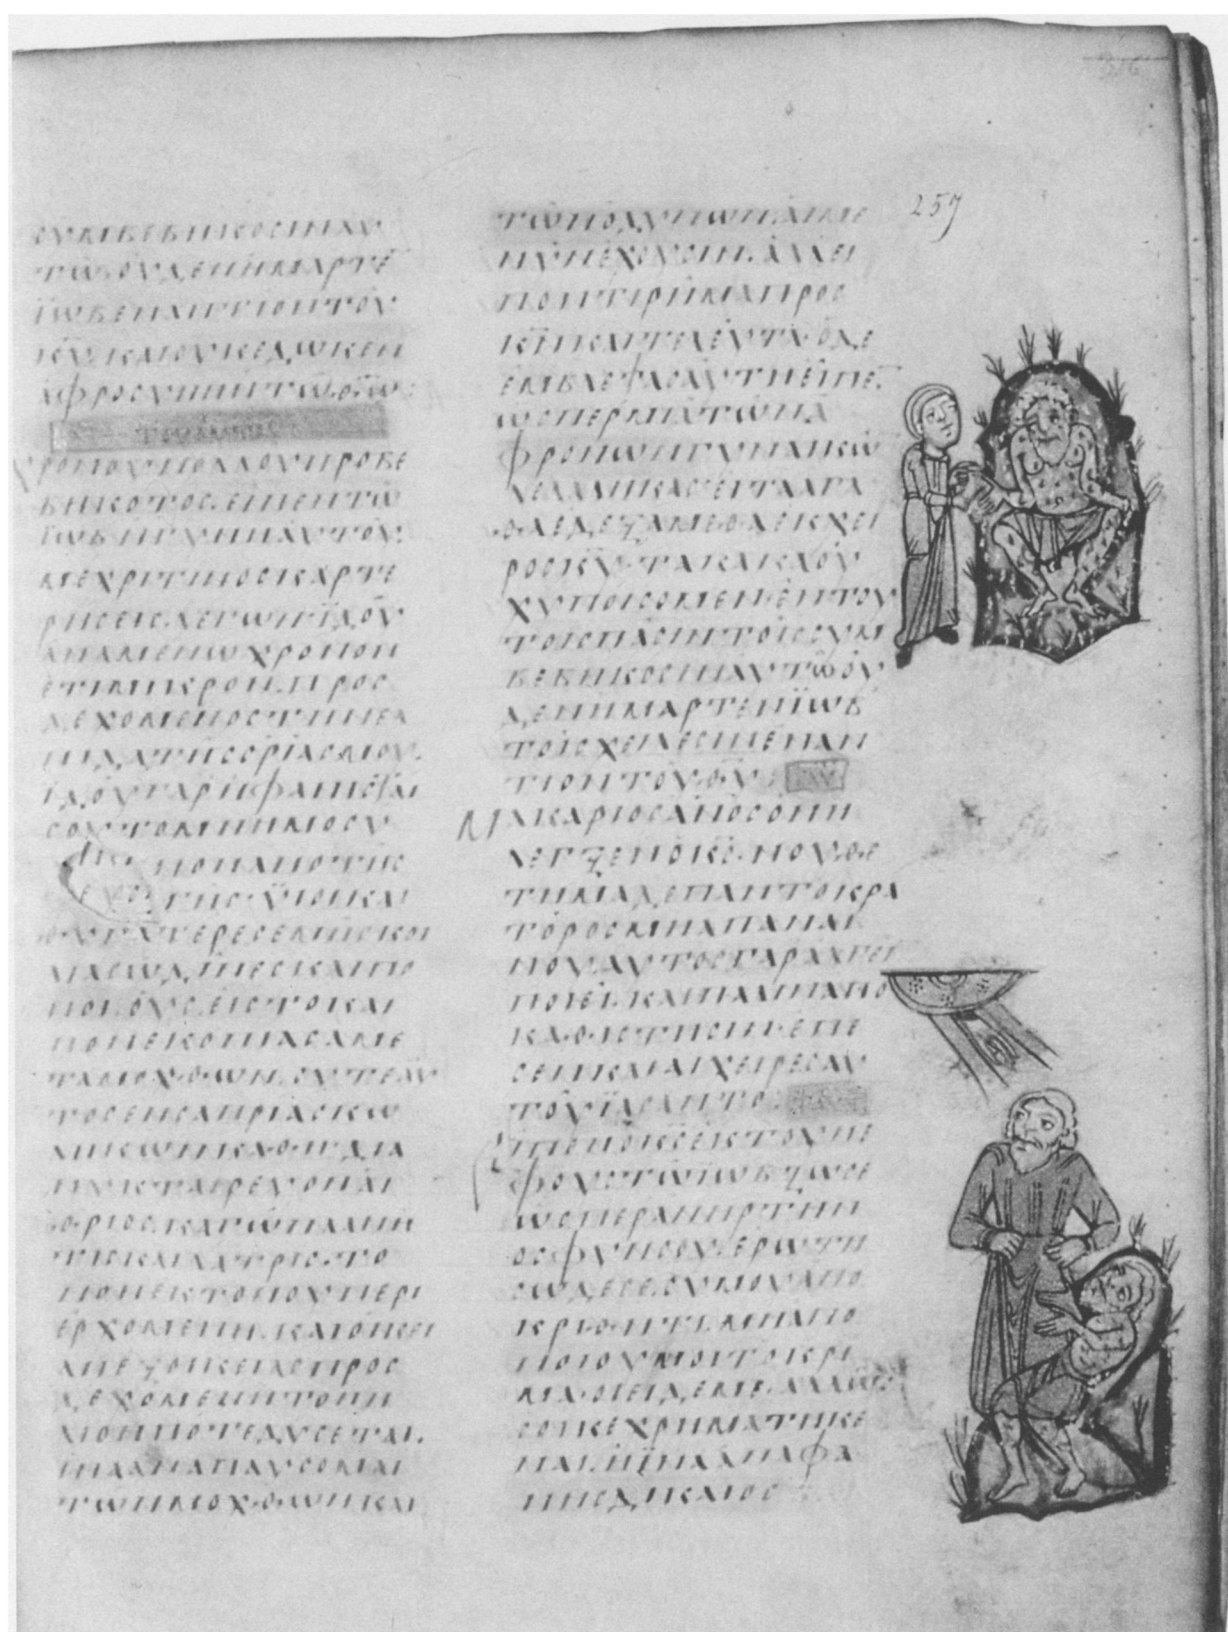 ϹΥΜΒΕΒΗΚΟϹΙΝΑΥ
ΤΩ·ΟΥΔΕΝΗΜΑΡΤΕ
ΪΩΒΕΝΑΝΤΙΟΝΤΟΥ
ΚΥ·ΚΑΙΟΥΚΕΔΩΚΕΝ
ΑΦΡΟϹΥΝΗΝΤΩΘΩ:
ΧΡΟΝΟΥΠΟΛΛΟΥΠΡΟΒΕ
ΒΗΚΟΤΟϹ·ΕΙΠΕΝΤΩ
ΪΩΒΗΓΥΝΗΑΥΤΟΥ·
ΜΕΧΡΙΤΙΝΟϹΚΑΡΤΕ
ΡΗϹΕΙϹΛΕΓΩΝΪΔΟΥ
ΑΝΑΜΕΝΩΧΡΟΝΟΝ
ΕΤΙΜΙΚΡΟΝ·ΠΡΟϹ
ΔΕΧΟΜΕΝΟϹΤΗΝΕΛ
ΠΙΔΑΤΗϹϹΡΙΑϹΜΟΥ·
ΪΔΟΥΓΑΡΗΦΑΝΙϹΤΑΙ
ϹΟΥΤΟΜΝΗΜΟϹΥ
ΝΟΝΑΠΟΤΗϹ
ΓΗϹ·ΫΙΟΙΚΑΙ
ΘΥΓΑΤΕΡΕϹΕΜΗϹΚΟΙ
ΛΙΑϹΩΔΙΝΕϹΚΑΙΠΟ
ΝΟΙ·ΟΥϹΕΙϹΤΟΚΑΙ
ΝΟΝΕΚΟΠΙΑϹΑΜΕ
ΤΑΜΟΧΘΩΝ·ϹΥΤΕΑΥ
ΤΟϹΕΝϹΑΠΡΙΑϹΚΩ
ΛΗΚΩΝΚΑΘΗΔΙΑ
ΝΥΚΤΑΙΡΕΥΟΝΑΙ
ΘΡΙΟϹ·ΚΑΓΩΠΛΑΝΗ
ΤΙϹΚΑΙΛΑΤΡΙϹ·ΤΟ
ΠΟΝΕΚΤΟΠΟΥΠΕΡΙ
ΕΡΧΟΜΕΝΗ·ΚΑΙΟΙΚΕΙ
ΑΝΕΞΟΙΚΕΙΑϹΠΡΟϹ
ΔΕΧΟΜΕΝΗΤΟΝΗ
ΛΙΟΝΠΟΤΕΔΥϹΕΤΑΙ·
ΙΝΑΑΝΑΠΑΥϹΟΜΑΙ
ΤΩΝΜΟΧΘΩΝΚΑΙ
257
ΤΩΝΟΔΥΝΩΝΑΙΜΕ
ΝΥΝΕΧΟΥϹΙΝ·ΑΛΛΕΙ
ΠΟΝΤΙΡΗΜΑΠΡΟϹ
ΚΝΚΑΙΤΕΛΕΥΤΑ·ΟΔΕ
ΕΜΒΛΕΨΑϹΑΥΤΗΕΙΠΕ·
ΩϹΠΕΡΜΙΑΤΩΝΑ
ΦΡΟΝΩΝΓΥΝΑΙΚΩ
ΛΕΛΑΛΗΚΑϹ·ΕΙΤΑΑΓΑ
ΘΑΕΔΕΞΑΜΕΘΑΕΚΧΕΙ
ΡΟϹΚΥ·ΤΑΚΑΚΑΟΥ
ΧΥΠΟΙϹΟΜΕΝ·ΕΝΤΟΥ
ΤΟΙϹΠΑϹΙΝΤΟΙϹϹΥΜ
ΒΕΒΗΚΟϹΙΝΑΥΤΩΟΥ
ΔΕΝΗΜΑΡΤΕΝΪΩΒ
ΤΟΙϹΧΕΙΛΕϹΙΝΕΝΑΝ
ΤΙΟΝΤΟΥΘΥ:
ΜΑΚΑΡΙΟϹΑΝΟϹΟΝΗ
ΛΕΓΞΕΝΟΚϹ·ΝΟΥΘΕ
ΤΗΜΑΔΕΠΑΝΤΟΚΡΑ
ΤΟΡΟϹΜΗΑΠΑΝΑΙ
ΝΟΥ·ΑΥΤΟϹΓΑΡΑΛΓΕΙ
ΠΟΙΕΙ·ΚΑΙΠΑΛΙΝΑΠΟ
ΚΑΘΙϹΤΗϹΙΝ·ΕΠΕ
ϹΕΝΚΑΙΑΙΧΕΙΡΕϹΑΥ
ΤΟΥΪΑϹΑΝΤΟ:
ΕΙΠΕΝΟΚϹΕΚΤΟΥΝΕ
ΦΟΥϹΤΩΪΩΒΖΩϹΕ
ΩϹΠΕΡΑΝΗΡΤΗΝ
ΟϹΦΥΝϹΟΥ·ΕΡΩΤΗ
ϹΩΔΕϹΕ·ϹΥΜΟΥΑΠΟ
ΚΡΙΘΗΤΙ·ΜΗΑΠΟ
ΠΟΙΟΥΜΟΥΤΟΚΡΙ
ΜΑ·ΟΙΕΙΔΕΜΕΑΛΛΩϹ
ϹΟΙΚΕΧΡΗΜΑΤΗΚΕ
ΝΑΙ·ΗΪΝΑΑΝΑΦΑ
ΝΗϹΔΙΚΑΙΟϹ